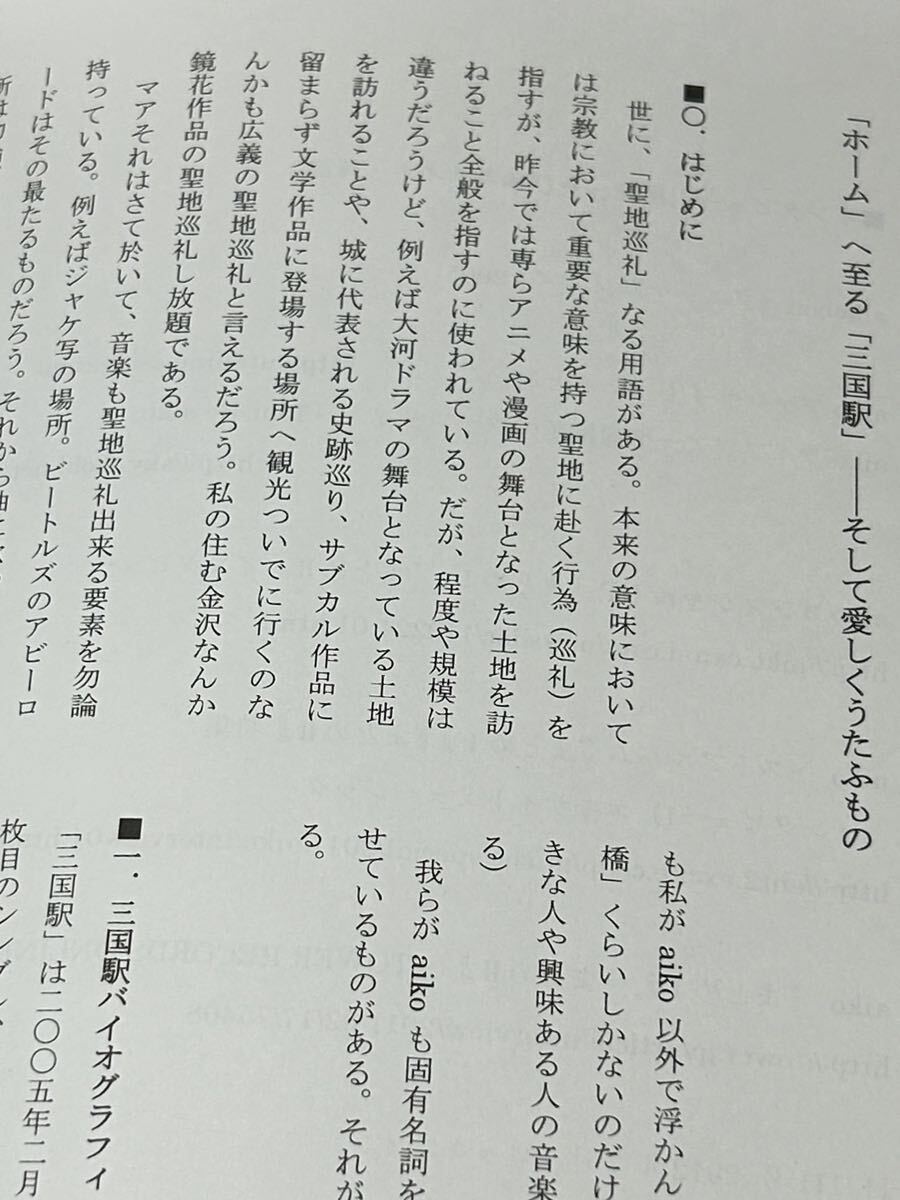 「ホーム」へ至る「三国駅」――そして愛しくうたふもの
■〇．はじめに
世に、「聖地巡礼」なる用語がある。本来の意味において
は宗教において重要な意味を持つ聖地に赴く行為（巡礼）を
指すが、昨今では専らアニメや漫画の舞台となった土地を訪
ねること全般を指すのに使われている。だが、程度や規模は
違うだろうけど、例えば大河ドラマの舞台となっている土地
を訪れることや、城に代表される史跡巡り、サブカル作品に
留まらず文学作品に登場する場所へ観光ついでに行くのな
んかも広義の聖地巡礼と言えるだろう。私の住む金沢なんか
鏡花作品の聖地巡礼し放題である。
マアそれはさて於いて、音楽も聖地巡礼出来る要素を勿論
持っている。例えばジャケ写の場所。ビートルズのアビーロ
ードはその最たるものだろう。それから
も私が aiko 以外で浮かん
橋」くらいしかないのだけ
きな人や興味ある人の音楽
る）
我らが aiko も固有名詞を
せているものがある。それが
る。
■一．三国駅バイオグラフィ
「三国駅」は二〇〇五年二月
枚目のシングル、